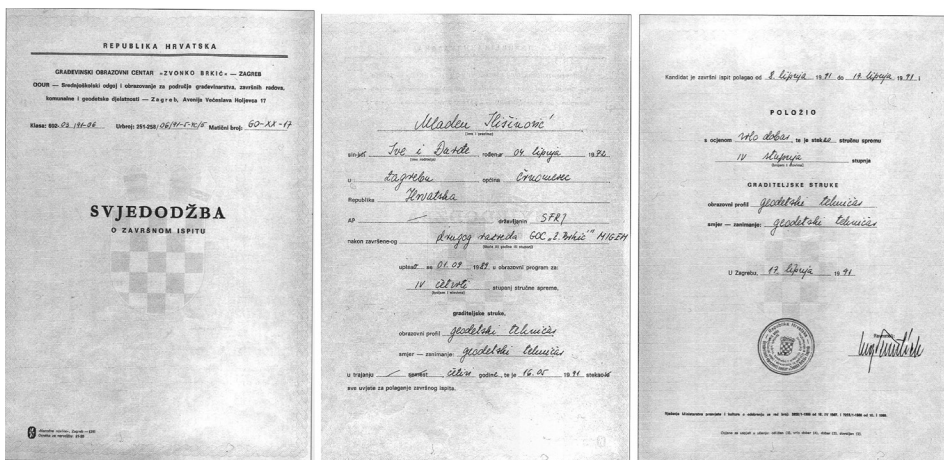 REPUBLIKA HRVATSKA
GRAĐEVINSKI OBRAZOVNI CENTAR »ZVONKO BRKIĆ« — ZAGREB
OOUR — Srednjoškolski odgoj i obrazovanje za područje građevinarstva, završnih radova,
komunalne i geodetske djelatnosti — Zagreb, Avenija Većeslava Holjevca 17
Klasa: 602-03/91-06 Urbroj: 251-258/06/91-5-IC/5 Matični broj: GO-XX-17
SVJEDODŽBA
O ZAVRŠNOM ISPITU
Mladen
(ime i prezime)
sin-kći Ive i Đurđe, rođena 04. lipnja 1972
(ime roditelja)
u Zagrebu općina Črnomerec
Republika Hrvatska
AP — državljanin SFRJ
nakon završene-og drugog razreda GOC „Z. Brkić" MIGEM
upisa se 01.09 1989, u obrazovni program za:
IV četvrti stupanj stručne spreme,
(brojem i slovima)
graditeljske struke,
obrazovni profil geodetski tehničar
smjer — zanimanje: geodetski tehničar
u trajanju — četiri godine, te je 16.05 1991 stekao
sve uvjete za polaganje završnog ispita.
Kandidat je završni ispit polagao od 8. lipnja 1991 do 17. lipnja 1991 i
POLOŽIO
s ocjenom vrlo dobar, te je stekao stručnu spremu
IV stupnja stupnja
(brojem i slovima)
GRADITELJSKE STRUKE
obrazovni profil geodetski tehničar
smjer — zanimanje: geodetski tehničar
U Zagrebu, 17. lipnja 1991